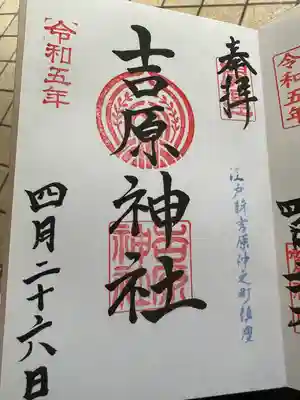 奉拝
江戸新吉原仲之町鎮座
吉原神社
吉原
神社
令和五年
四月二十六日
令和五年